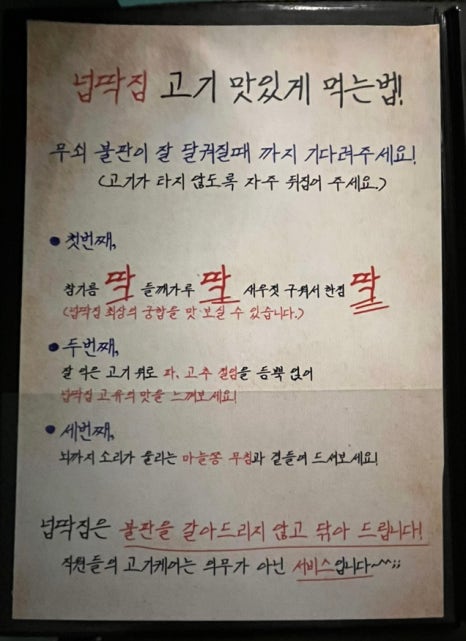 넙딱집 고기 맛있게 먹는법!
무쇠 불판이 잘 달궈질때 까지 기다려주세요!
(고기가 타지 않도록 자주 뒤집어 주세요.)
• 첫번째,
참기름 딱 들깨가루 딱 새우젓 구워서 한점 딱
(넙딱집 최상의 궁합을 맛 보실 수 있습니다.)
• 두번째,
잘 익은 고기 위로 파, 고추 절임을 듬뿍 얹어
넙딱집 고유의 맛을 느껴보세요!
• 세번째,
뇌까지 소리가 울리는 마늘쫑 무침과 곁들여 드셔보세요!
넙딱집은 불판을 갈아드리지 않고 닦아 드립니다!
직원들의 고기케어는 의무가 아닌 서비스입니다~^^;;